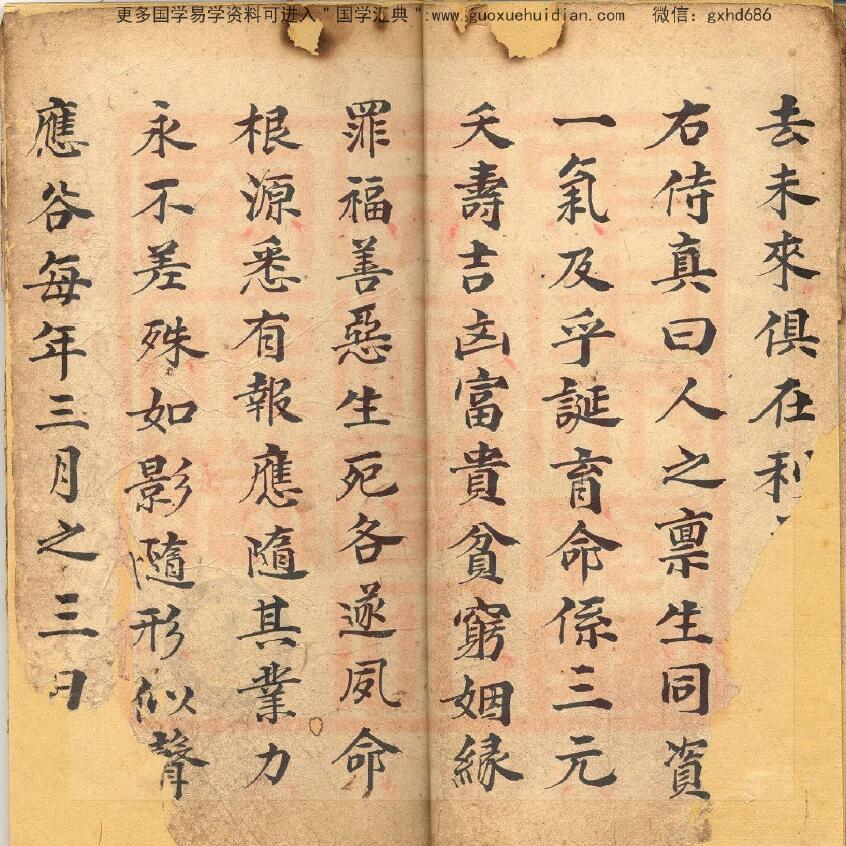 更多国学易学资料可进入＂国学汇典＂:www.guoxuehuidian.com 微信：gxhd686
去未來俱在利
右侍真曰人之禀生同資
一氣及乎誕育命係三元
夭壽吉凶富貴貧窮姻緣
罪福善惡生死各遂夙命
根源悉有報應隨其業力
永不差殊如影隨形似聲
應谷每年三月之三日